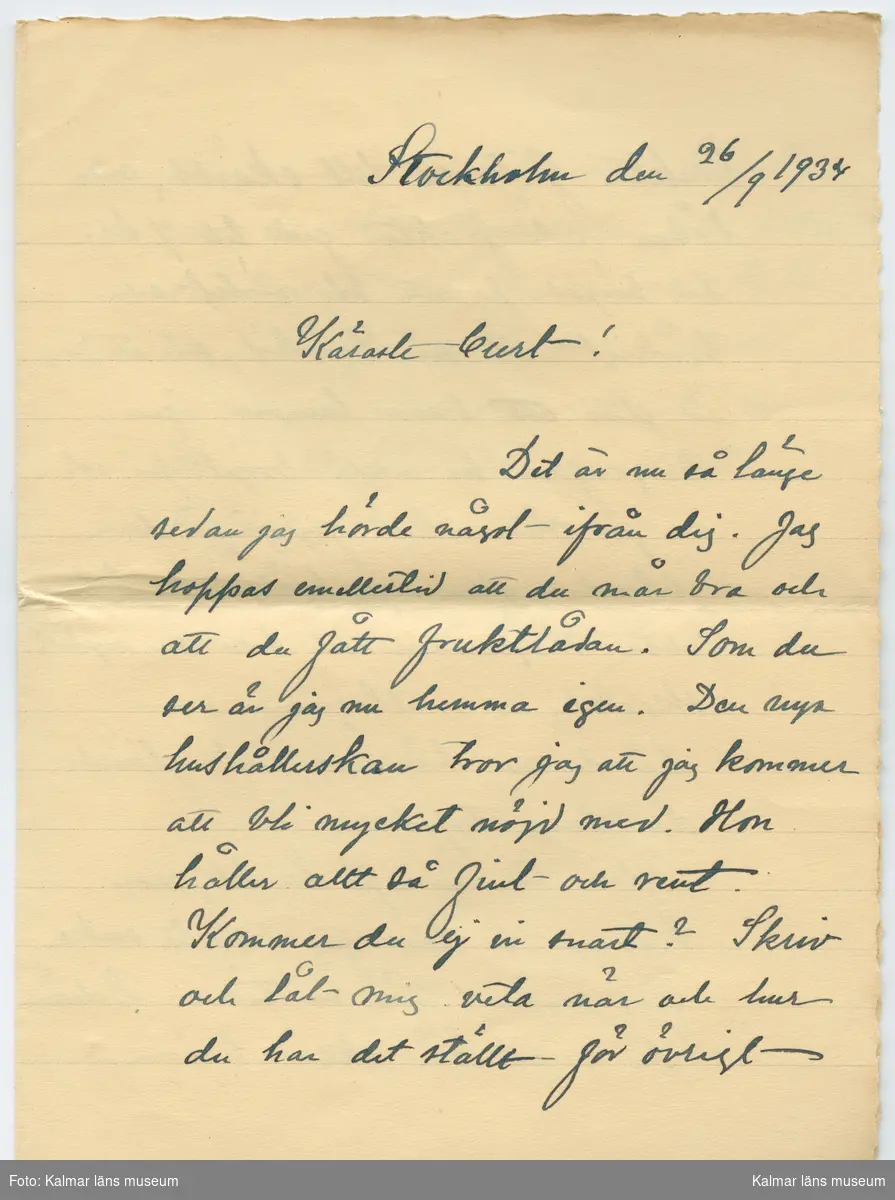 Stockholm den 26/9 1934
Käraste Curt!
Det är nu så länge
sedan jag hörde något ifrån dig. Jag
hoppas emellertid att du mår bra och
att du fått fruktlådan. Som du
ser är jag nu hemma igen. Den nya
hushållerskan tror jag att jag kommer
att bli mycket nöjd med. Hon
håller allt så fint och rent.
Kommer du ej in snart? Skriv
och låt mig veta när och hur
du har det ställt för övrigt
Foto: Kalmar läns museum
Kalmar läns museum